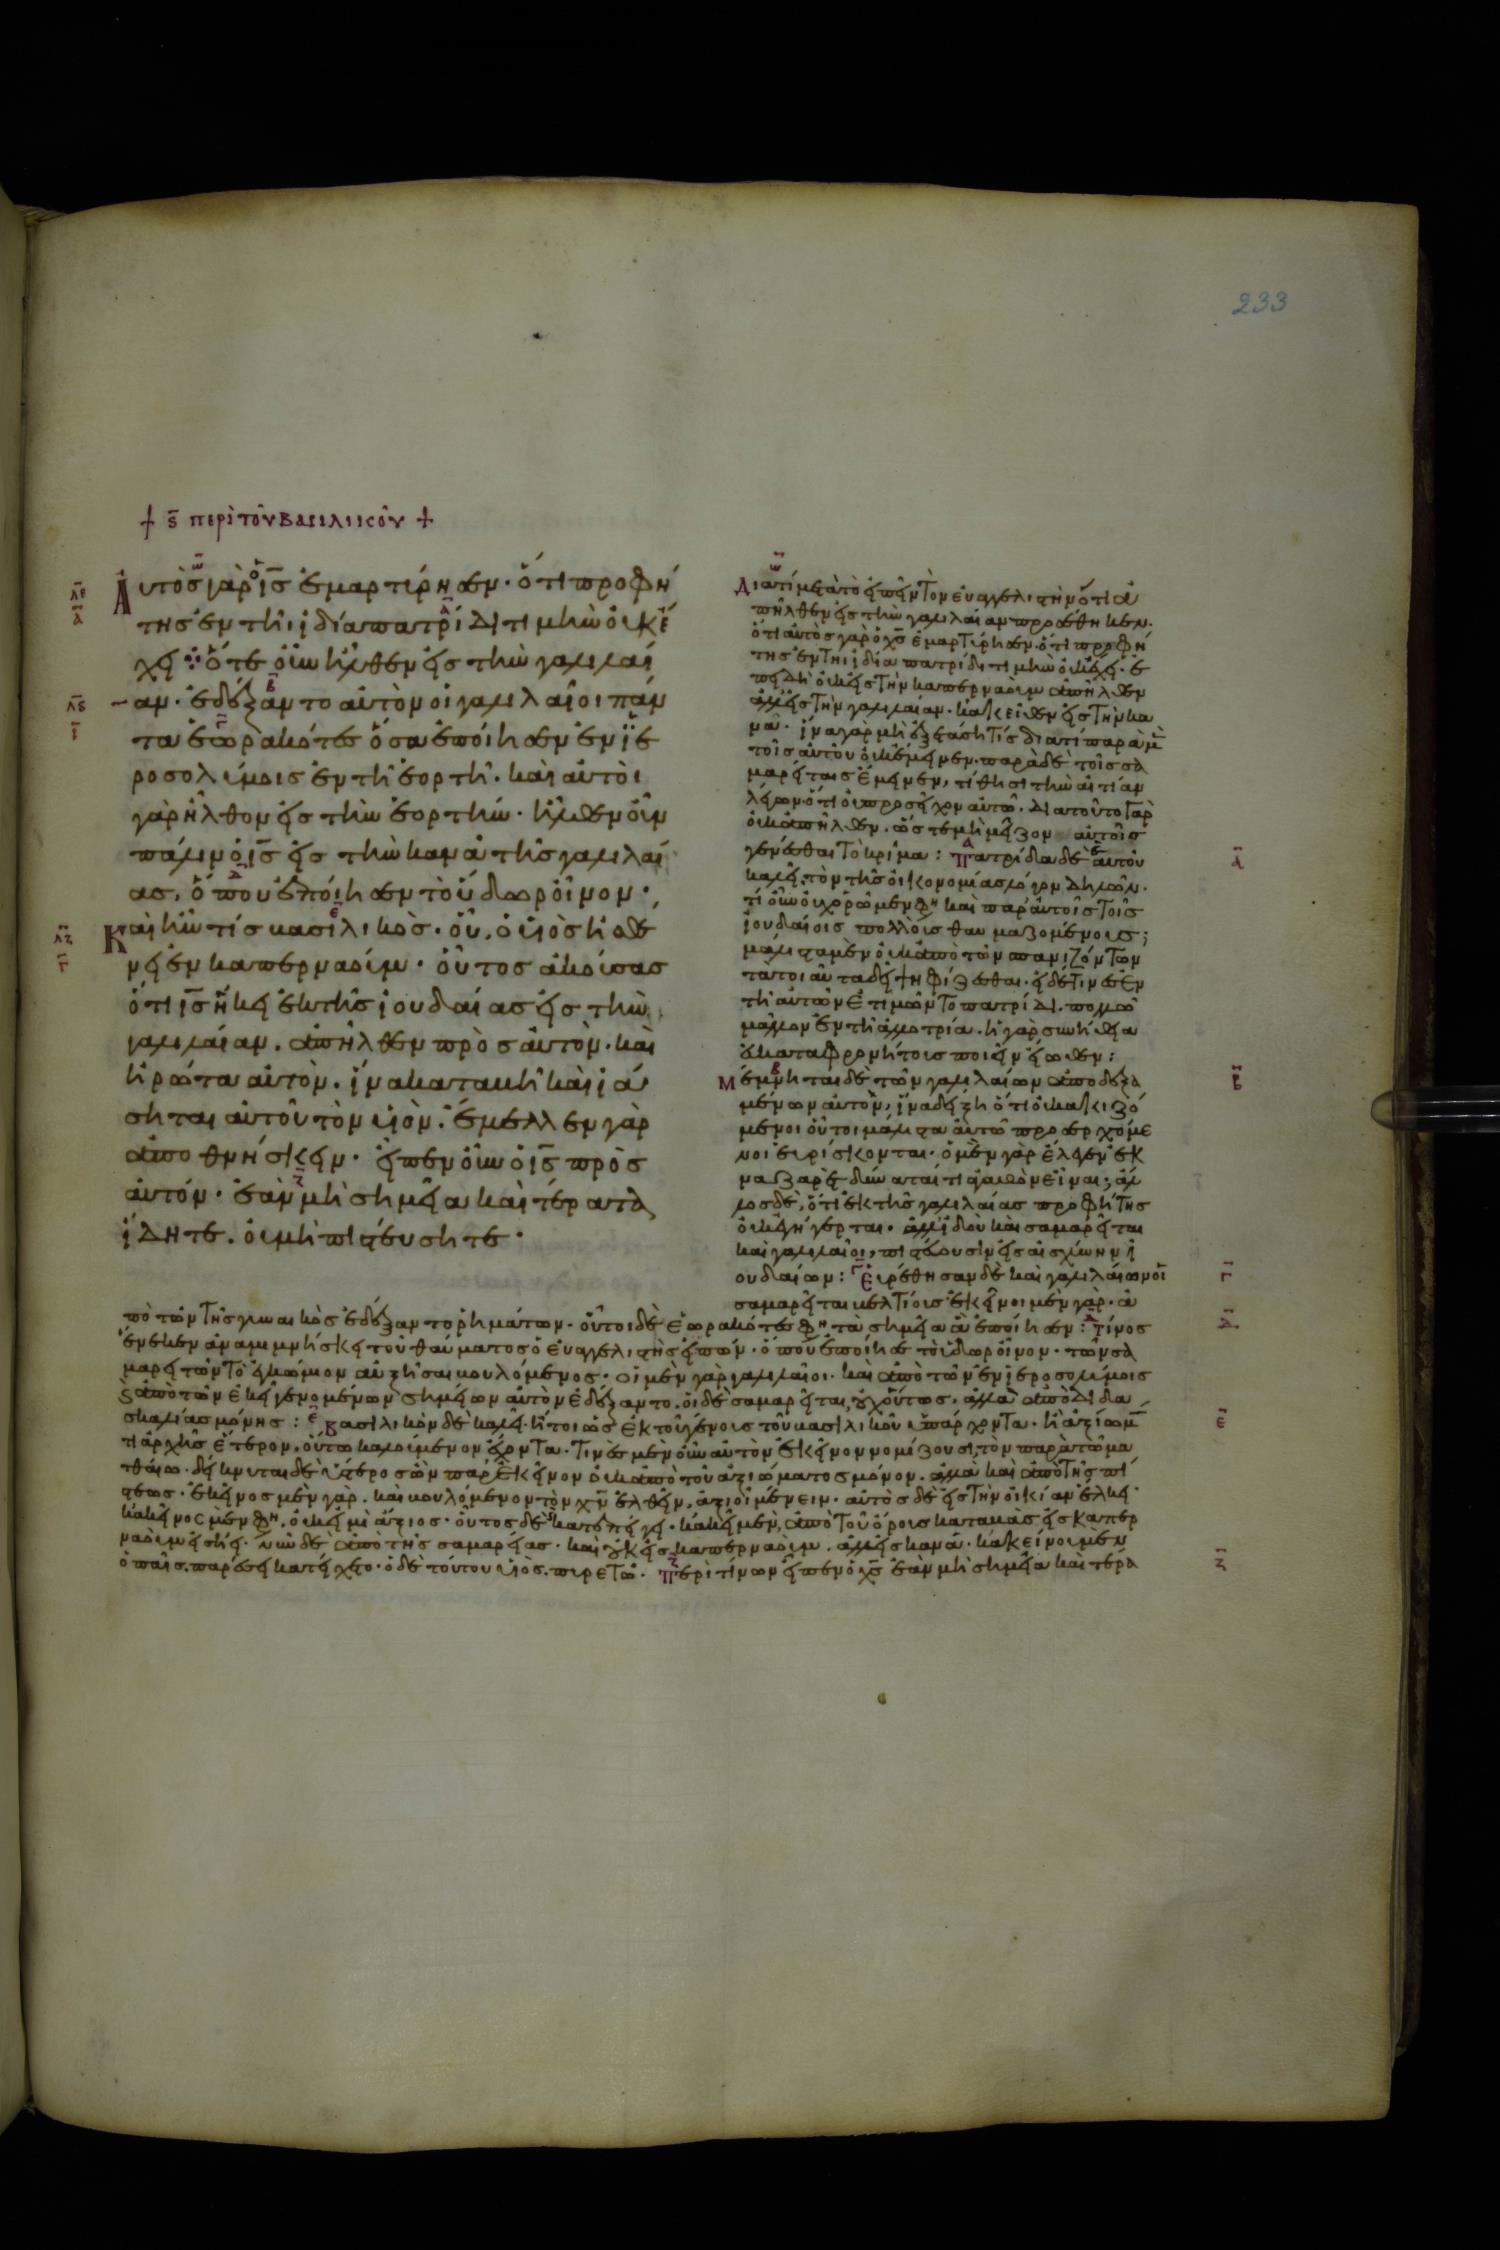 233
+ ς̅ περὶ τοῦ βασιλικοῦ +
Αὐτὸς γὰρ ὁ ι̅ς̅ ἐμαρτύρησεν· ὅτι προφή
της ἐν τῆι ἰδία πατρίδι τιμὴν οὐκ ἔ
χει ὅτε οὖν ἦλθεν εἰς τὴν γαλιλαί
αν· ἐδέξαντο αὐτὸν οἱ γαλιλαῖοι πάν
τα ἑωρακότες ὅσα ἐποίησεν ἐν ἱε
ροσολύμοις ἐν τῆ ἑορτῆ· καὶ αὐτοὶ
γὰρ ἦλθον εἰς τὴν ἑορτήν· ἦλθεν οὖν
πάλιν ὁ ι̅ς̅ εἰς τὴν κανᾶ τῆς γαλιλαί
ας, ὅπου ἐποίησεν τὸ ὕδωρ οἶνον·
Καὶ ἦν τίς βασιλικὸς· οὗ, ὁ υἱὸς ἠσθέ
νει ἐν καπερναούμ· οὗτος ἀκούσας
ὅτι ι̅ς̅ ἥκει ἐκ τῆς ἰουδαίας εἰς τὴν
γαλιλαίαν. ἀπῆλθεν πρὸς αὐτὸν· καὶ
ἠρώτα αὐτὸν. ἵνα καταβῆ καὶ ἰά
σηται αὐτοῦ τὸν υἱόν. ἔμελλεν γὰρ
ἀποθνήσκειν· εἶπεν οὖν ὁ ι̅ς̅ πρὸς
αὐτόν· ἐὰν μὴ σημεῖα καὶ τέρατα
ἴδητε. οὐ μὴ πιστεύσητε·
Διατί μετὰ τὸ εἰπεῖν τὸν εὐαγγελιστὴν ὅτι ἀ
πῆλθεν εἰς τὴν γαλιλαίαν προσέθηκεν·
ὅτι αὐτὸς γὰρ ὁ χ̅ς̅ ἐμαρτύρησεν· ὅτι προφή
της ἐν τῆι ἰδία πατρίδι τιμὴν οὐκ ἔχει· ἐ
πειδὴ οὐκ εἰς τὴν καπερναοὺμ ἀπῆλθεν
ἀλλ' εἰς τὴν γαλιλαίαν. κἀκεῖθεν εἰς τὴν κα
νᾶ· ἵνα γὰρ μὴ ἐξετάση τίς διατί παρὰ μ̅
τοῖς αὐτοῦ οὐκ ἔμεινεν· παρὰ δὲ τοῖς σα
μαρείταις ἔμεινεν, τίθησι τὴν αἰτίαν
λέγων· ὅτι οὐ προσεῖχον αὐτῶ. διατοῦτο γὰρ
οὐκ ἀπῆλθεν. ὥστε μὴ μεῖζον αὐτοῖς
γενέσθαι τὸ κρίμα: Πατρίδα δὲ αὐτοῦ
καλεῖ, τὸν τῆς οἰκονομίας λόγον δηλῶν.
τί οὖν οὐχ ὁρῶμεν φη καὶ παρ' αὐτοῖς τοῖς
ἰουδαίοις πολλοὺς θαυμαζομένους;
μάλιστα μὲν οὐκ ἀπὸ τῶν σπανιζόντων
τὰ τοιαῦτα δεῖ ψηφίζεσθαι. εἰ δέ τινες ἐν
τῆ αὐτῶν ἐτιμῶντο πατρίδι. πολλῶ
μᾶλλον ἐν τῆ ἀλλοτρία. ἡ γὰρ συνήθεια
εὐκαταφρονήτους ποιεῖν εἴωθεν:
Μέμνηται δὲ τῶν γαλιλαίων ἀποδεξα
μένων αὐτὸν, ἵνα δείξη ὅτι οἱ κακιζό
μενοι οὗτοι μάλιστα αὐτῶ προσερχόμε
νοι εὑρίσκονται. ὁ μὲν γὰρ ἔλεγεν ἐκ
ναζαρὲτ δύναταί τι ἀγαθὸν εἶναι; ἄλ
λος δὲ, ὅτι ἐκ τῆς γαλιλαίας προφήτης
οὐκ ἐγήγερται. ἀλλ' ἰδοὺ καὶ σαμαρεῖται
καὶ γαλιλαῖοι, πιστεύουσιν εἰς αἰσχύνην ἰ
ουδαίων: Εὑρέθησαν δὲ καὶ γαλιλαίων οἱ
σαμαρεῖται βελτίους ἐκεῖνοι μὲν γὰρ. ἀ
πὸ τῶν τῆς γυναικὸς ἐδέξαντο ῥημάτων· οὗτοι δὲ ἑωρακότες φη τὰ σημεῖα ἃ ἐποίησεν: Τίνος
ἕνεκεν ἀναμιμνήσκει τοῦ θαύματος ὁ εὐαγγελιστὴς εἰπών· ὅπου ἐποίησε τὸ ὕδωρ οἶνον· τῶν σα
μαρειτῶν τὸ ἐγκώμιον αὐξῆσαι βουλόμενος· οἱ μὲν γὰρ γαλιλαῖοι. καὶ ἀπὸ τῶν ἐν ἱεροσολύμοις
ϛ ἀπὸ τῶν ἐκεῖ γενομένων σημείων αὐτὸν ἐδέξαντο. οἱ δὲ σαμαρεῖται, οὐχ οὕτως. ἀλλὰ ἀπὸ διδα
σκαλίας μόνης: Βασιλικὸν δὲ καλεῖ· ἤτοι ὡς ἐκ τοῦ γένους τοῦ βασιλικοῦ ὑπάρχοντα. ἢ ἀξίωμ̅
τι ἀρχῆς ἕτερον, οὕτω καλούμενον ἔχοντα. Τινὲς μὲν οὖν αὐτὸν ἐκεῖνον νομίζουσι, τὸν παρὰ τῶ μα
τθαίω. δείκνυται δὲ ἕτερος ὢν παρ' ἐκεῖνον οὐκ ἀπὸ τοῦ ἀξιώματος μόνον. ἀλλὰ καὶ ἀπὸ τῆς πί
στεως. ἐκεῖνος μὲν γὰρ. καὶ βουλόμενον τὸν χ̅ν̅ ἐλθεῖν, ἀξιοῖ μένειν. αὐτὸς δὲ εἰς τὴν οἰκίαν ἕλκει·
κἀκεῖνος μέν φη. οὐκ εἰμὶ ἄξιος· οὗτος δὲ κατεπείγει. κἀκεῖ μὲν, ἀπὸ τοῦ ὄρους καταβὰς εἰς καπερ
ναοὺμ εἰσήει. νῦν δὲ ἀπὸ τῆς σαμαρείας. καὶ οὐκ εἰς καπερναοὺμ. ἀλλ' εἰς κανᾶ. κἀκείνου μὲν
ὁ παῖς. παρέσει κατείχετο. ὁ δὲ τούτου υἱὸς. πυρετῶ. Περὶ τίνων εἶπεν ὁ χ̅ς̅ ἐὰν μὴ σημεῖα καὶ τέρα